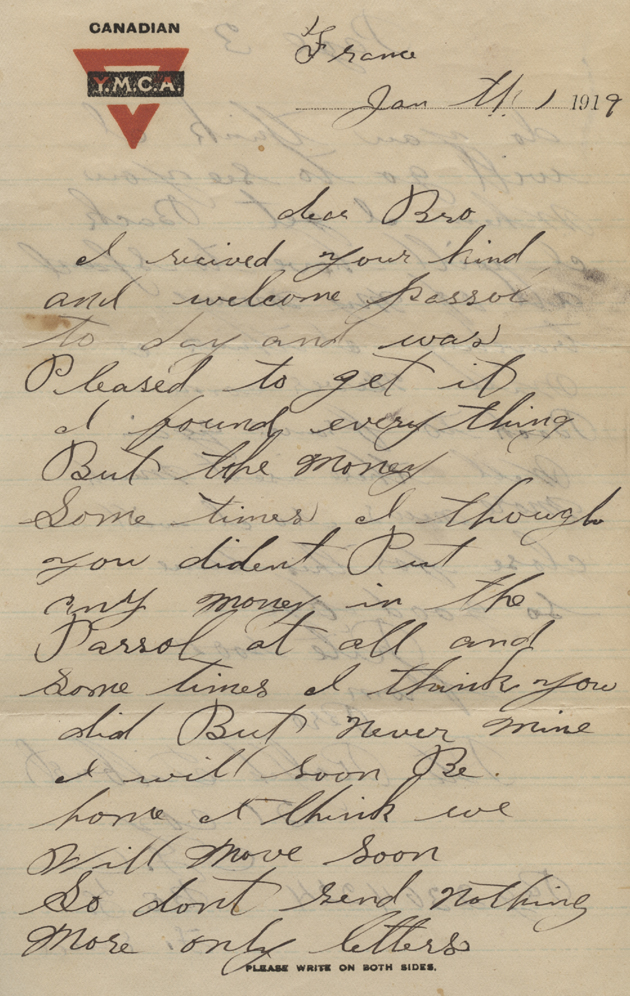 CANADIAN
Y.M.C.A.
France
Jan 1 1919
dear Bro
I recived your kind
and welcome Passol
to day and was
Pleased to get it
I found every thing
But the money
Some times I though
you dident Put
any money in the
Passol at all and
some times I think you
did But never mine
I will soon Be.
home I think we
Will Move soon
So dont send nothing
More only letters
PLEASE WRITE ON BOTH SIDES.